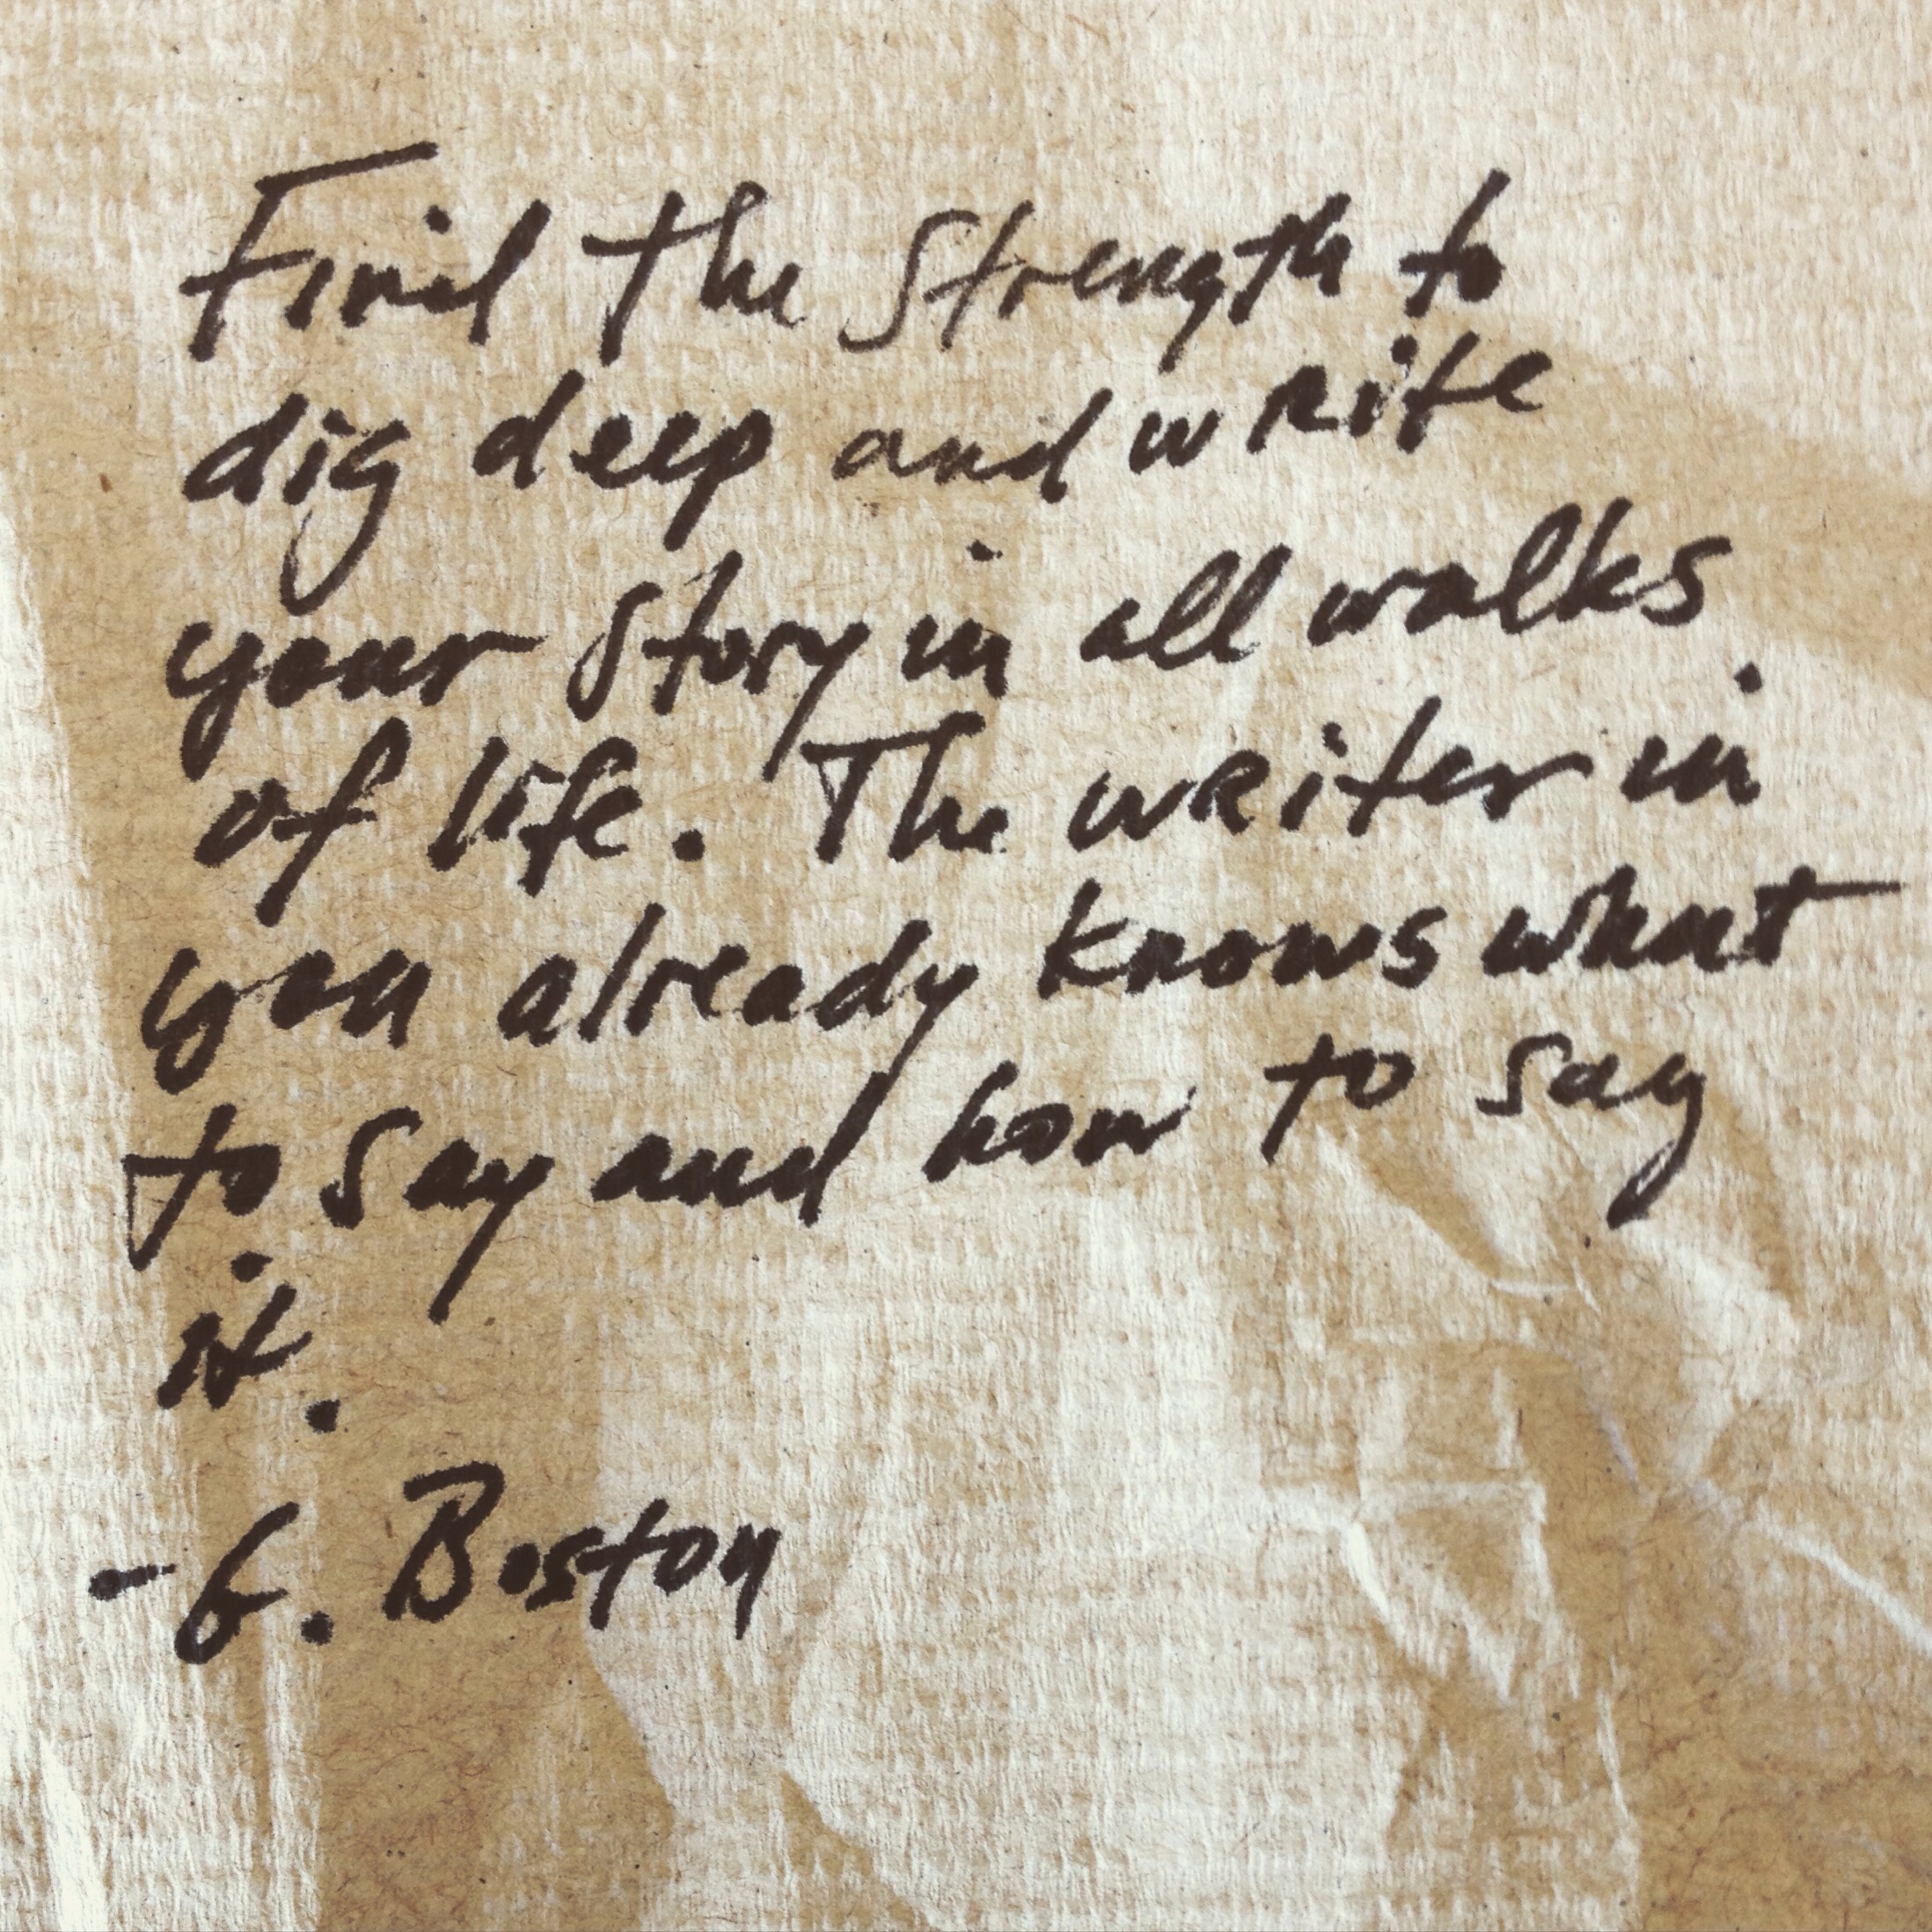 Find the strength to
dig deep and write
your story in all walks
of life. The writer in
you already knows what
to say and how to say
it.
-G. Boston